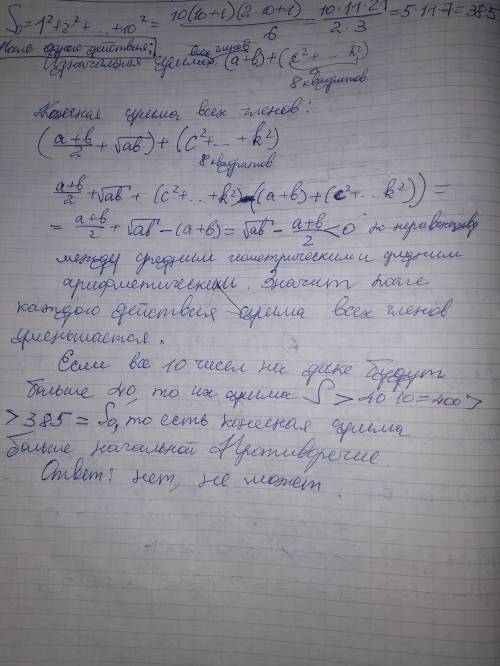 S₀ = 1² + 2² + ... + 10² = 10(10+1)(2·10+1)/6 = 10·11·21/2·3 = 5·11·7 = 385
После одного действия:
Изначальная сумма всех членов (a+b) + (c² + ... k²)
8 квадратов
Конечная сумма всех членов:
(a+b/2 + √ab) + (c² + ... + k²)
8 квадратов
a+b/2 + √ab + (c² + ... + k²) - ((a+b) + (c² + ... k²)) =
= a+b/2 + √ab - (a+b) = √ab - a+b/2 < 0 по неравенству
между средним геометрическим и средним
арифметическим. Значит после
каждого действия сумма всех членов
уменьшается.
Если все 10 чисел на доске будут
больше 40, то их сумма S > 40·10 = 400 >
> 385 = S₀, то есть конечная сумма
больше начальной. Противоречие.
Ответ: нет, не может.